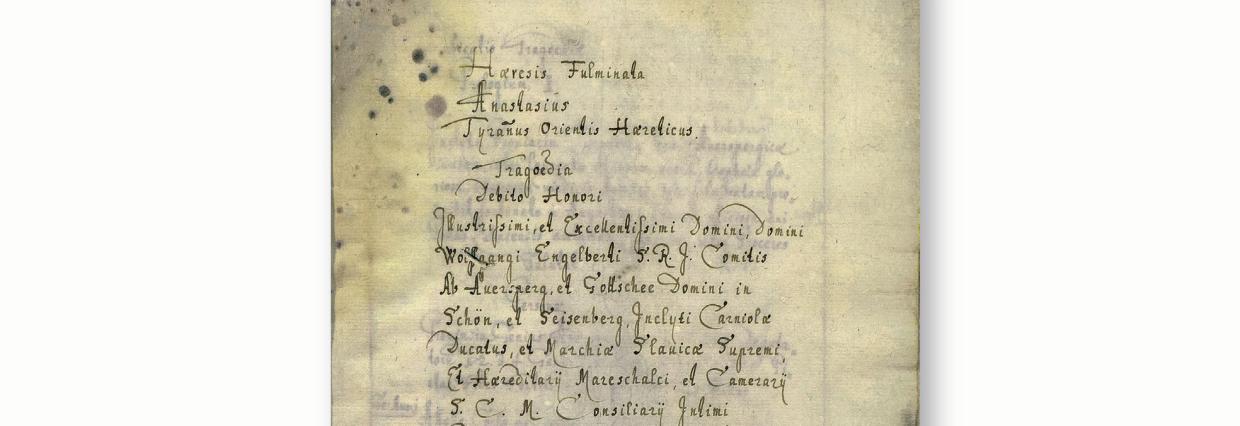 Hæresis Fulminata
Anastasius
Tyrañus Orientis Hæreticus.
Tragoedia
Debito Honori
Illustrissimi, et Excellentissimi Domini, Domini
Wolfgangi Engelberti S. R. J. Comitis
Ab Auersperg, et Gottschee Domini in
Schön, et Seisenberg, Inclyti Carniolæ
Ducatus, et Marchiæ Slavicæ Supremi,
Et Hæreditarÿ Mareschalci, et Camerarÿ
S. C. M. Consiliarÿ Intimi